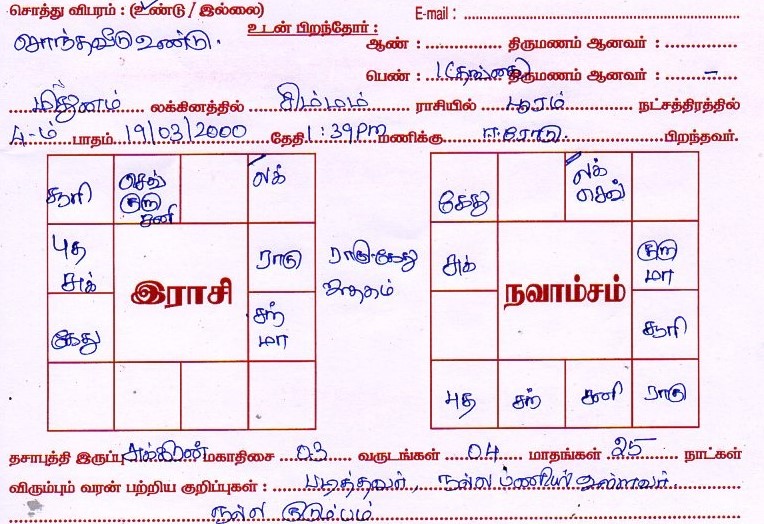 சொத்து விபரம் : (உண்டு / இல்லை)
E-mail :
சொந்தவீடு உண்டு.
உடன் பிறந்தோர் :
ஆண் : திருமணம் ஆனவர் :
பெண் : 1(தங்கை) திருமணம் ஆனவர் : -
மிதுனம் லக்கினத்தில் சிம்மம் ராசியில் பூரம் நட்சத்திரத்தில்
4-ம் பாதம் 19/03/2000 தேதி 1:39PM மணிக்கு ஈரோடு. பிறந்தவர்.
சூரி செவ் குரு சனி லக்
புத சுக் ராகு
கேது சந் மா
இராசி
ராகு-கேது
ஜாதகம்
கேது லக் செவ்
சுக் குரு மா
சூரி
புத சந் சனி ராகு
நவாம்சம்
தசாபுத்தி இருப்பு சுக்கிரன் மகாதிசை 03 வருடங்கள் 04 மாதங்கள் 25 நாட்கள்
விரும்பும் வரன் பற்றிய குறிப்புகள் : படித்தவர், நல்ல பணியில் உள்ளவர்.
நல்ல குடும்பம்